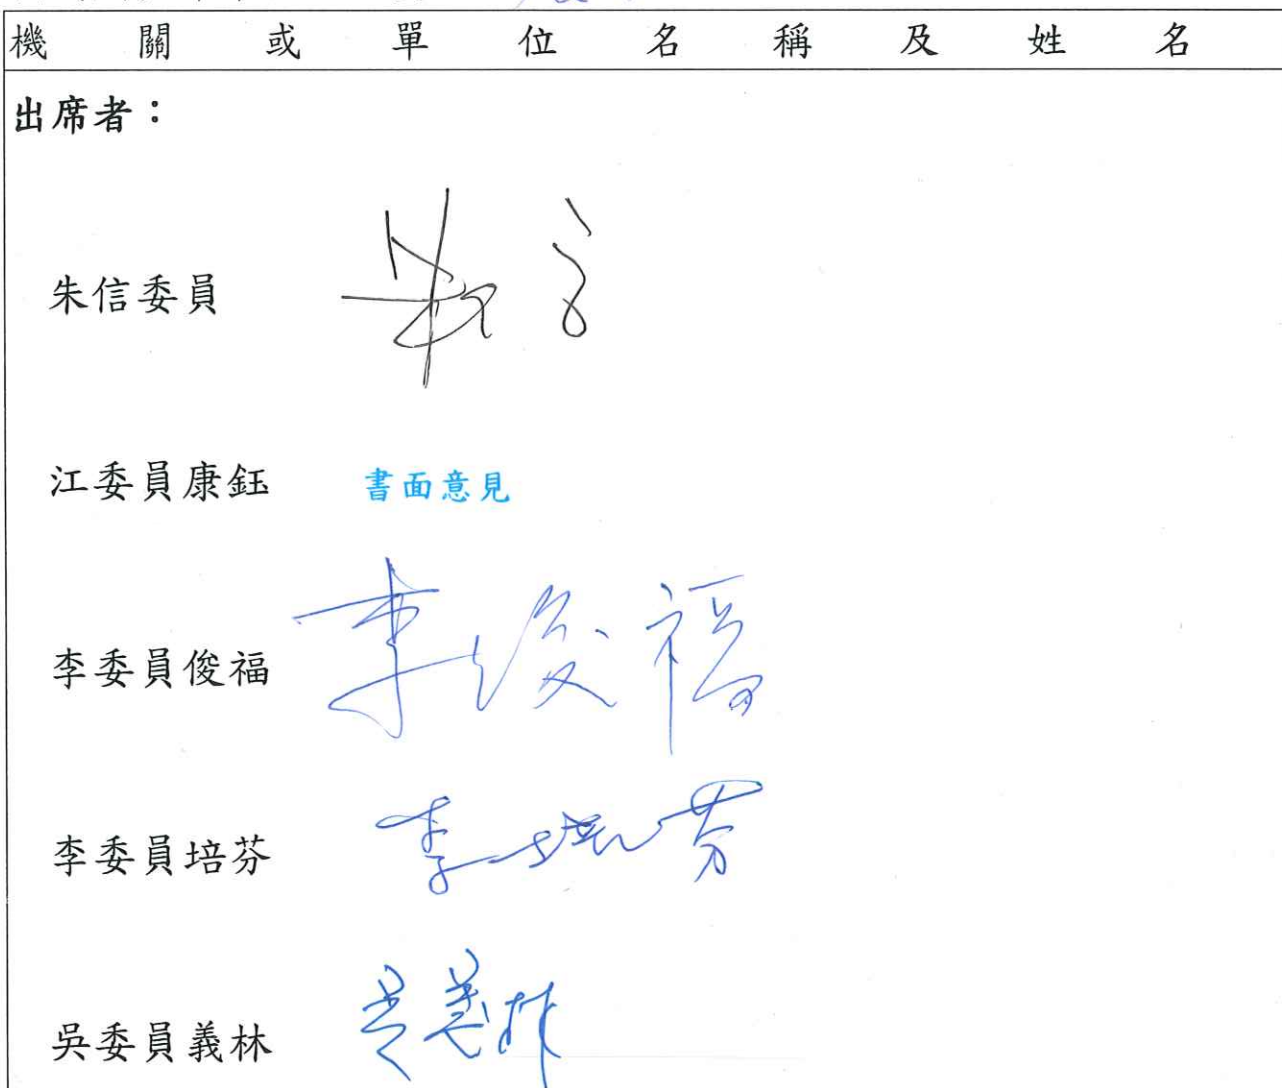 機關或單位名稱及姓名
出席者：
朱信委員 朱信
江委員康鈺 書面意見
李委員俊福 李俊福
李委員培芬 李培芬
吳委員義林 吳義林